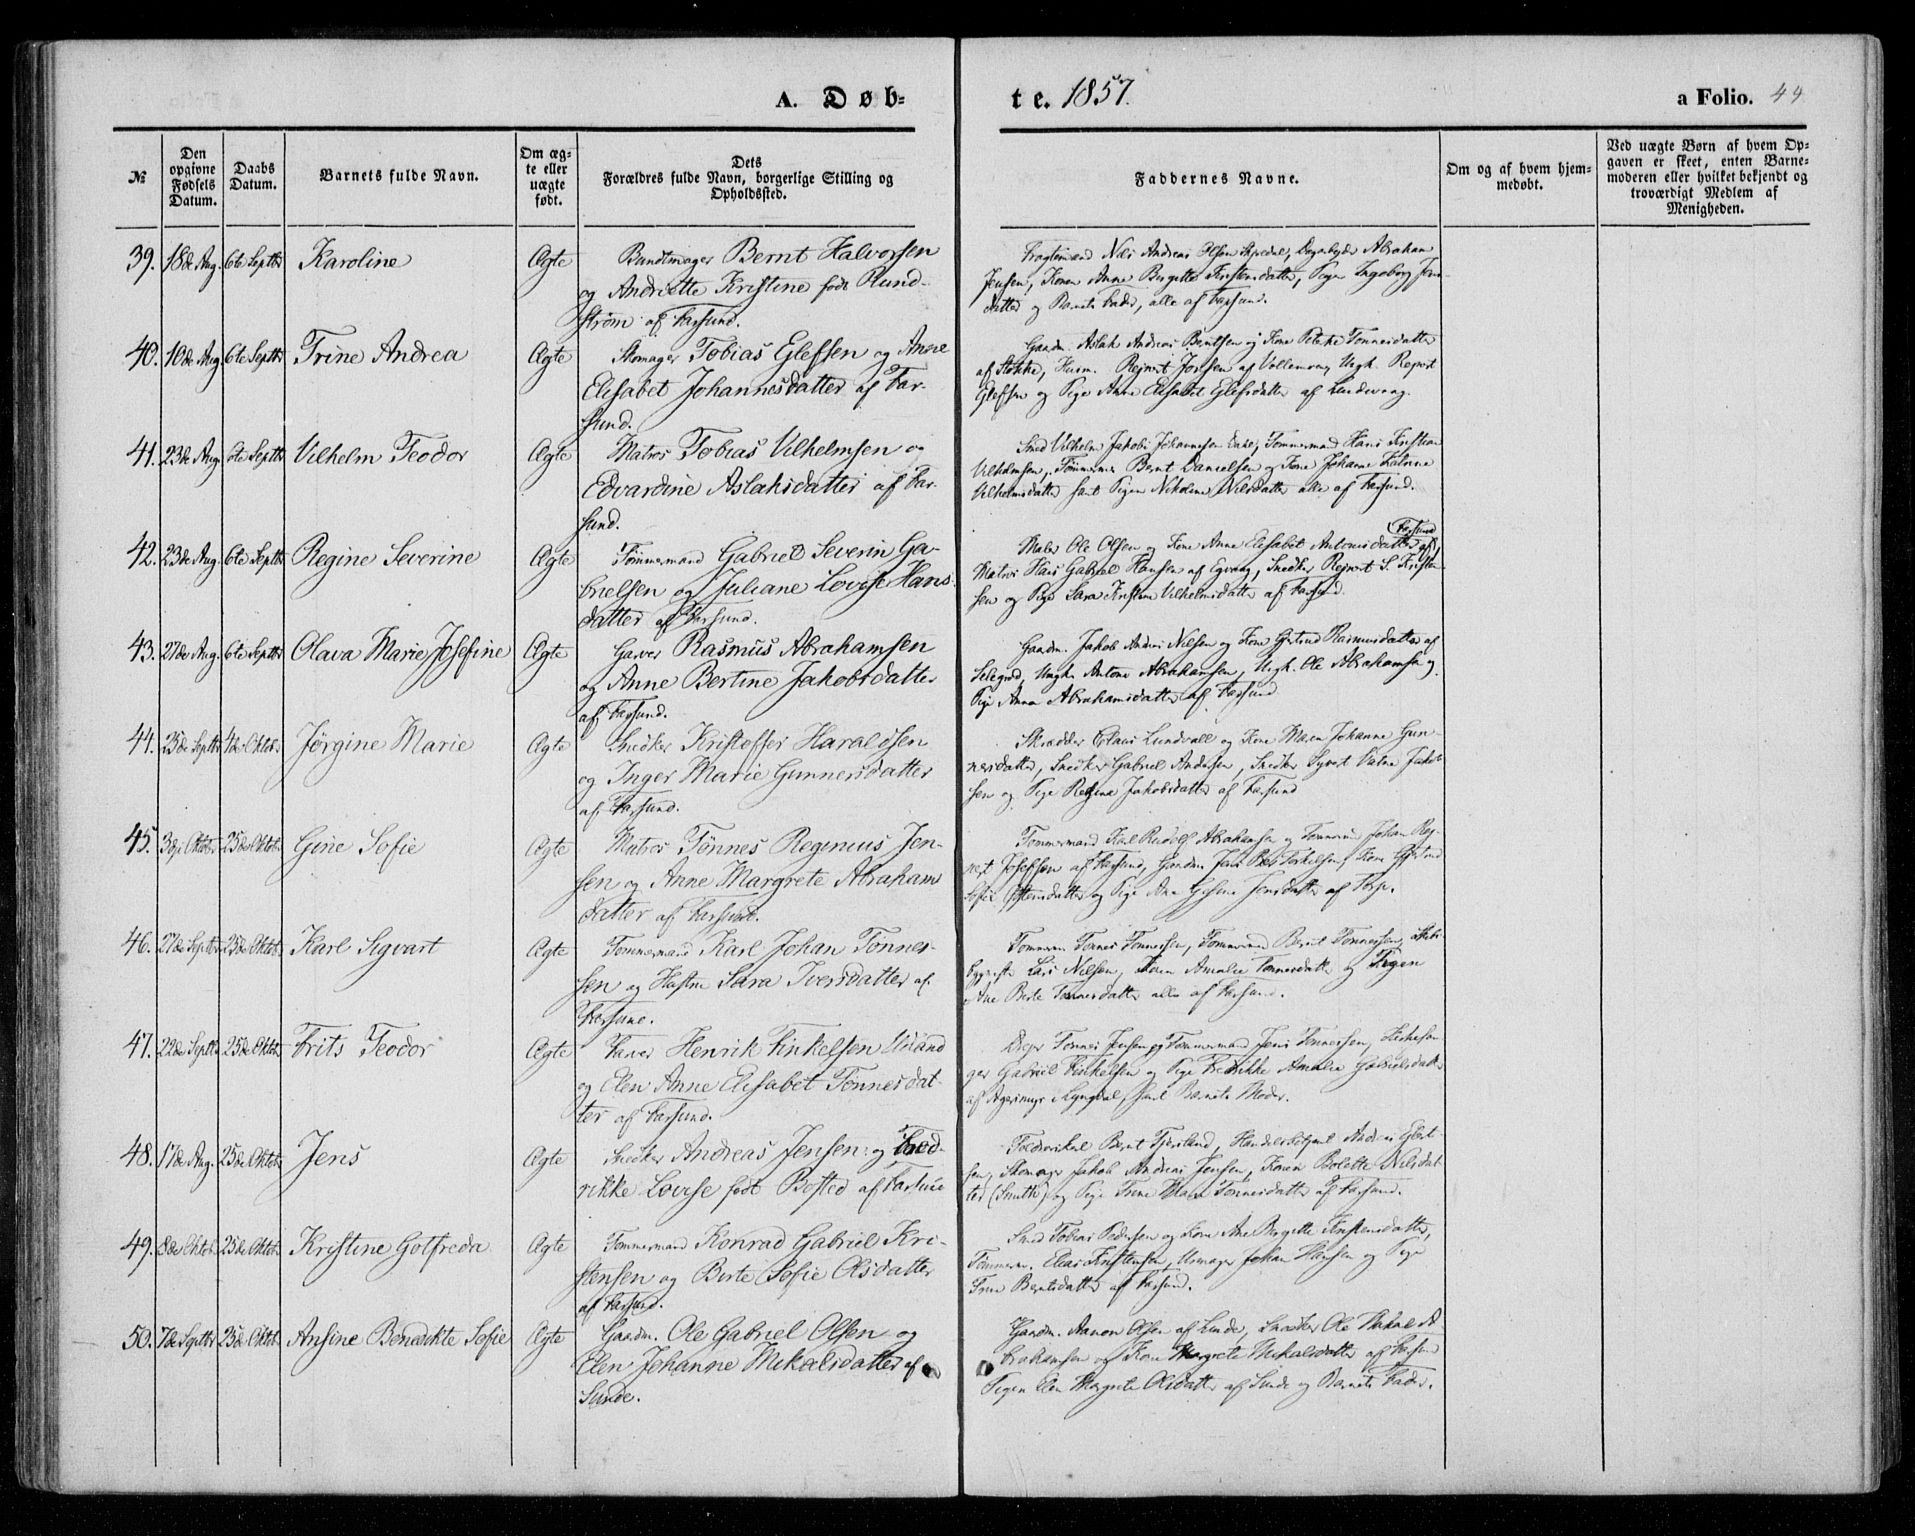 A. Døb-
te. 1857.
a Folio. 44
№
Den opgivne Fødsels Datum.
Daabs Datum.
Barnets fulde Navn.
Om ægte eller uægte født.
Dets Forældres fulde Navn, borgerlige Stilling og Opholdssted.
Faddernes Navne.
Om og af hvem hjemmedøbt.
Ved uægte Børn af hvem Opgaven er skeet, enten Barnemoderen eller hvilket bekjendt og troværdigt Medlem af Menigheden.
39. 18de Aug. 6te Septbr Karoline Ægte Bundtmager Bernt Halvorsen
og Andriette Kristine født Rund-
strøm af Farsund.
Andreas Olsen Abraham
Jensen, Konen Anne Birgitte Kristensdatter, Pigen Ingeborg Jens-
datter og Barnets Fader, alle af Farsund.
40. 10de Aug 6te Septbr Trine Andrea Ægte Skomager Tobias Elefsen og Anne
Elisabet Johannesdatter af Far-
sund.
Gaardm. Aslak Andreas Berntsen og Kone Tønnesdatter
af Stokke, Husm. Reinert Jensen af Ungk. Reinert
Elefsen og Pige Anne Elisabet Elefsdatter af
41. 23de Aug. 6te Septbr Vilhelm Teodor Ægte Matros Tobias Vilhelmsen og
Edvardine Aslaksdatter af Far-
sund.
Smed Vilhelm Jakobi Johannesen Tømmermand Hans Kristian
Vilhelmsen, Tømmerm. Bernt Danielsen og Kone Johanne
Vilhelmsdatter samt Pigen Nikoline Nilsdatter alle af Farsund.
42. 23de Aug. 6te Septbr Regine Severine Ægte Tømmermand Gabriel Severin Ga-
brielsen og Juliane Lovise Hans-
datter af Farsund.
Maler Ole Olsen og Kone Anne Elisabet Antonisdatter af Farsund,
Matros Hans Gabriel Hansen af Snedker Reinert S. Kristen-
sen og Pige Sara Vilhelmsdatter af Farsund.
43. 27de Aug. 6te Septbr Olava Marie Josefine Ægte Garver Rasmus Abrahamsen
og Anne Bertine Jakobsdatter
af Farsund.
Gaardm. Jakob Andreas Nilsen og Kone Gjertrud Rasmusdatter af
Ungk. Antoni Abrahamsen, Ungk. Ole Abrahamsen og
Pige Anna Abrahamsdatter af Farsund
44. 25de Septbr 4de Oktob. Jørgine Marie Ægte Snedker Kristoffer Haraldsen
og Inger Marie Gunnersdatter
af Farsund.
Skrædder Claus Lundvall og Kone Maren Johanne Gun-
nersdatter, Snedker Gabriel Andersen, Snedker Syvert Jakob-
sen og Pige Regine Jakobsdatter af Farsund
45. 3die Oktober 25de Oktob. Gine Sofie Ægte Matros Tønnes Reginius Jen-
sen og Anne Margrete Abrahams-
datter af Farsund.
Tømmermand Karl Rudolf Abrahamsen og Tømmerm. Johan Rei-
nert Josefsen af Farsund, Gaardm. Jens Terkelsen, Kone Gjertrud
Sofie og Pige Ane Gesine Jensdatter af
46. 27de Septbr 25de Oktob. Karl Sigvart Ægte Tømmermand Karl Johan Tønnes-
sen og Hustru Sara Iversdatter af
Farsund.
Tømmerm. Tønnes Tønnessen, Tømmermand Bernt Tønnessen, Skibs-
bygger Lars Nilsen, Konen Amalie Tønnesdatter og Pigen
Ane Berte Tønnesdatter alle af Farsund.
47. 22de Septbr 25de Oktob. Frits Teodor Ægte Farver Henrik Finkelsen
og Elen Anne Elisabet Tønnesdat-
ter af Farsund.
Dreyer Tønnes Jensen og Tømmermand Jens Tønnessen, Kirkesan-
ger Gabriel Finkelsen og Pige Fredrikke Amalie Gabrielsdatter
af Lyngdal, samt Barnets Moder.
48. 17de Aug. 25de Oktob. Jens Ægte Snedker Andreas Jensen og Fred-
rikke Lovise født Bosted af Farsund
Bernt Handelsbetjent Andreas
sen, Skomager Jakob Andreas Jensen, Konen Bolette Nilsdat-
ter (Smith) og Pige Trine Marie Tønnesdatter af Farsund.
49. 8de Oktob. 25de Oktob. Kristine Golfreda Ægte Tømmermand Konrad Gabriel Kri-
stensen og Berte Sofie Olsdatter
af Farsund.
Smed Tobias Pedersen og Kone Ane Birgitte Kristensdatter,
Tømmerm. Elias Kristensen, Urmager Johan Hansen og Pige
Trine Berntsdatter af Farsund.
50. 7de Septbr 25de Oktob. Ansine Benedikte Sofie Ægte Gaardm. Ole Gabriel Olsen og
Elen Johanne Mikalsdatter af
Sunde.
Gaardm. Aanen Olsen af Sunde, Snedker Ole Mikal A-
brahamsen og Kone Margrete Mikalsdatter af Farsund
Pigen Elen Margrete Olsdatter af Sunde og Barnets Fader.